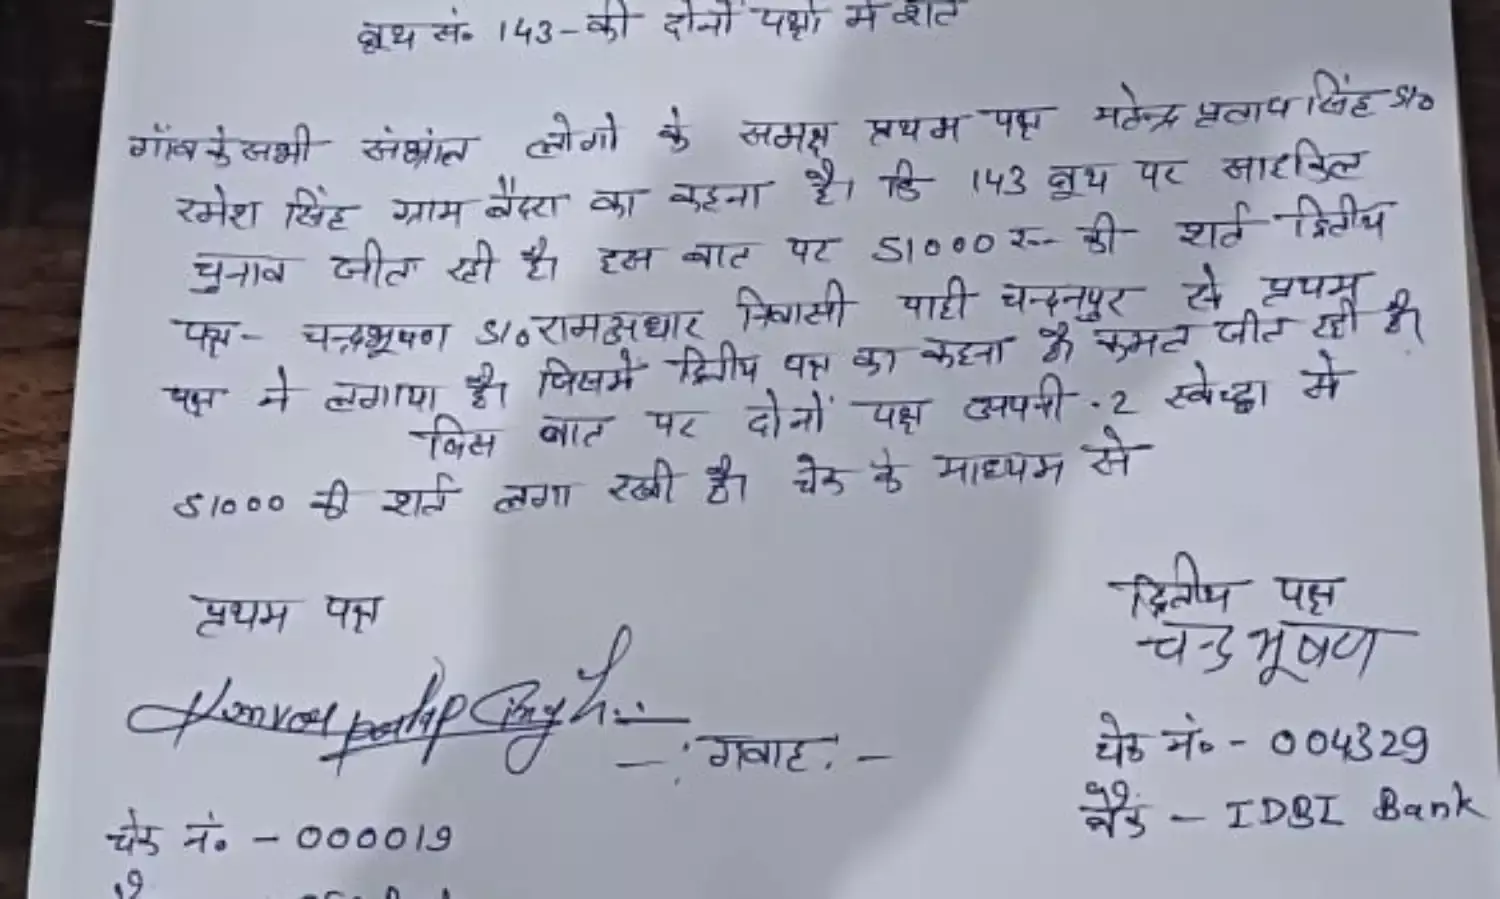 बूथ सं॰ 143 - की दोनों पक्षो में शर्त
गाँव के सभी संभ्रांत लोगो के समक्ष प्रथम पक्ष महेन्द्र प्रताप सिंह S/o
रमेश सिंह ग्राम का कहना है। कि 143 बूथ पर साइकिल
चुनाव जीत रही है। इस बात पर 51000 रू- की शर्त द्वितीय
पक्ष - चन्द्रभूषण S/o रामअधार निवासी पाही चन्दनपुर से प्रथम
पक्ष ने लगाया है। जिसमें द्वितीय पक्ष का कहना है कमल जीत रही है।
जिस बात पर दोनों पक्ष अपनी - 2 स्वेच्छा से
51000 की शर्त लगा रखी है। चेक के माध्यम से
प्रथम पक्ष
द्वितीय पक्ष
चन्द्रभूषण
-: गवाह: -
चेक नं॰ - 004329
बैंक - IDBI Bank
चेक नं॰ - 000019